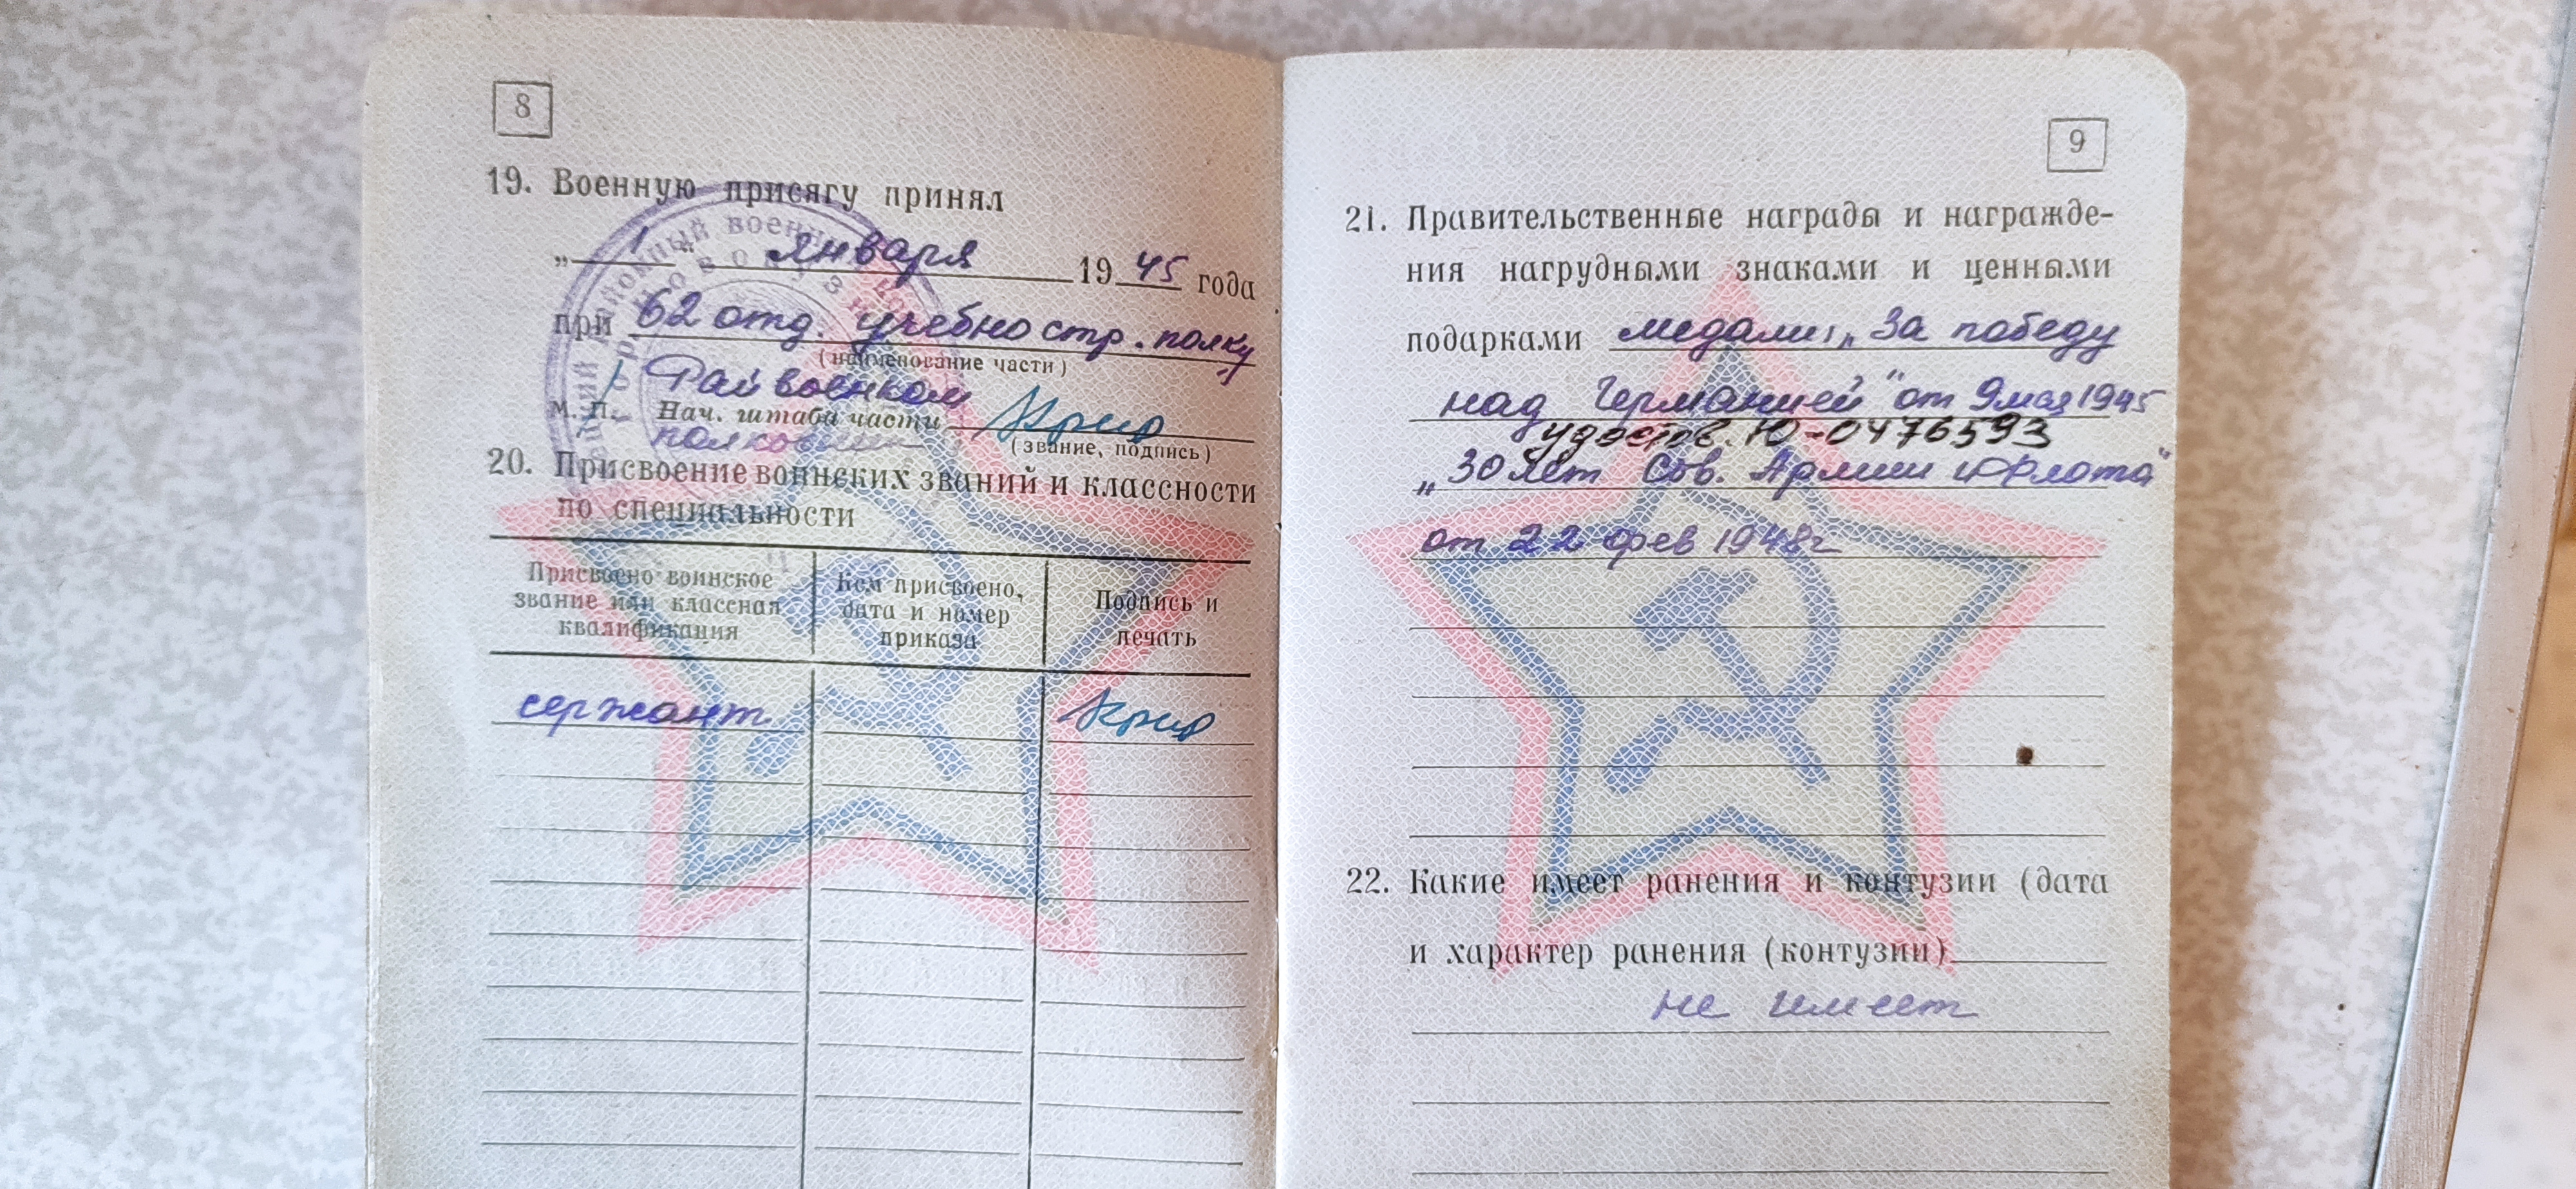 8
19. Военную присягу принял
„ 1 “ января 19 45 года
при 62 отд. учебно стр. полку
(наименование части)
Рай военком
М. П. Нач. штаба части
(звание, подпись)
20. Присвоение воинских званий и классности
по специальности
Присвоено воинское звание или классная квалификация
Кем присвоено, дата и номер приказа
Подпись и печать
сержант
9
21. Правительственные награды и награжде-
ния нагрудными знаками и ценными
подарками медали „За победу
над Германией" от 9 мая 1945
удостов. Ю-0476593
„30 лет Сов. Армии и Флота"
от 22 фев 1948г
22. Какие имеет ранения и контузии (дата
и характер ранения (контузии)
не имеет